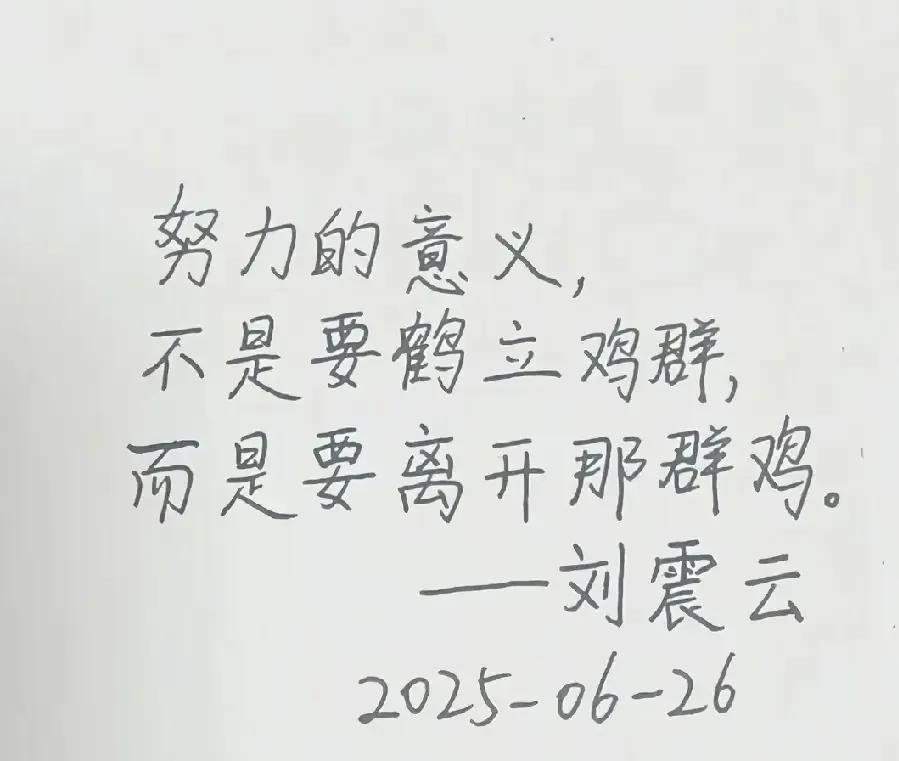 努力的意义,
不是要鹤立鸡群,
而是要离开那群鸡。
——刘震云
2025-06-26